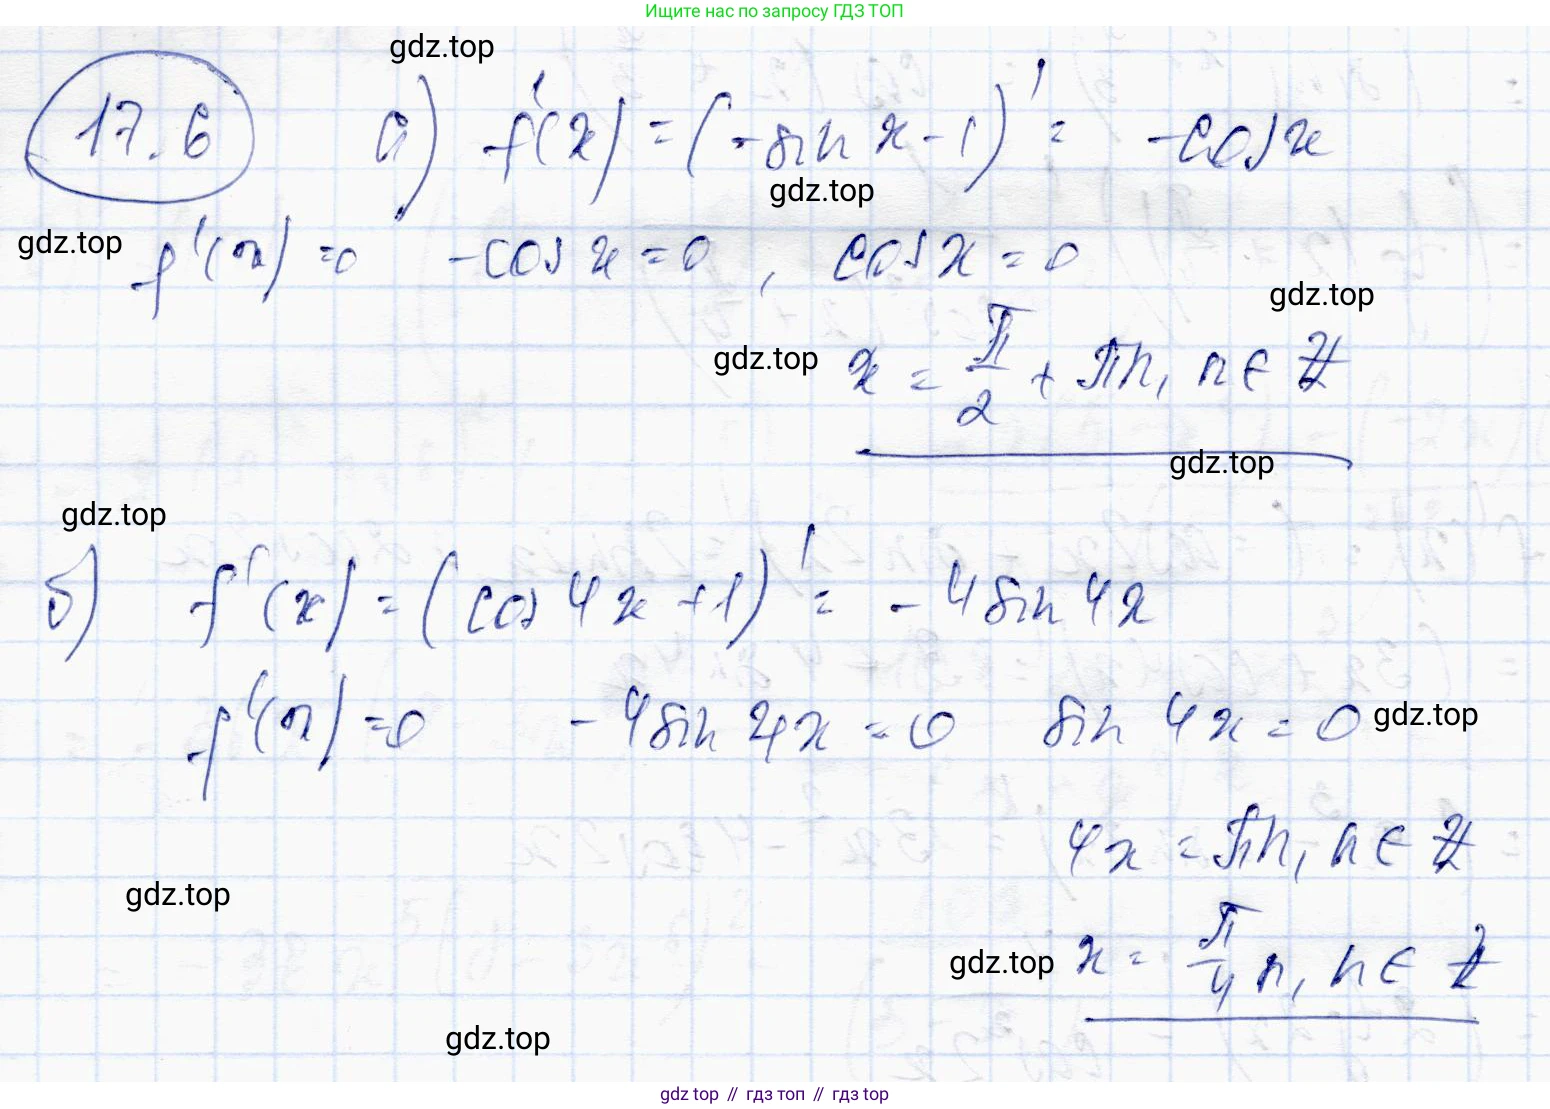 Ищите нас по запросу ГДЗ ТОП
gdz.top
17.6 а) f'(x) = (-sin x - 1)' = -cos x
gdz.top
gdz.top f'(x) = 0 -cos x = 0, cos x = 0
gdz.top
gdz.top x = π/2 + πn, n ∈ Z
gdz.top
gdz.top
б) f'(x) = (cos 4x + 1)' = -4 sin 4x
f'(x) = 0 -4 sin 4x = 0 sin 4x = 0 gdz.top
4x = πn, n ∈ Z
gdz.top
gdz.top x = π/4 n, n ∈ Z
gdz.top
gdz.top // гдз топ // гдз top